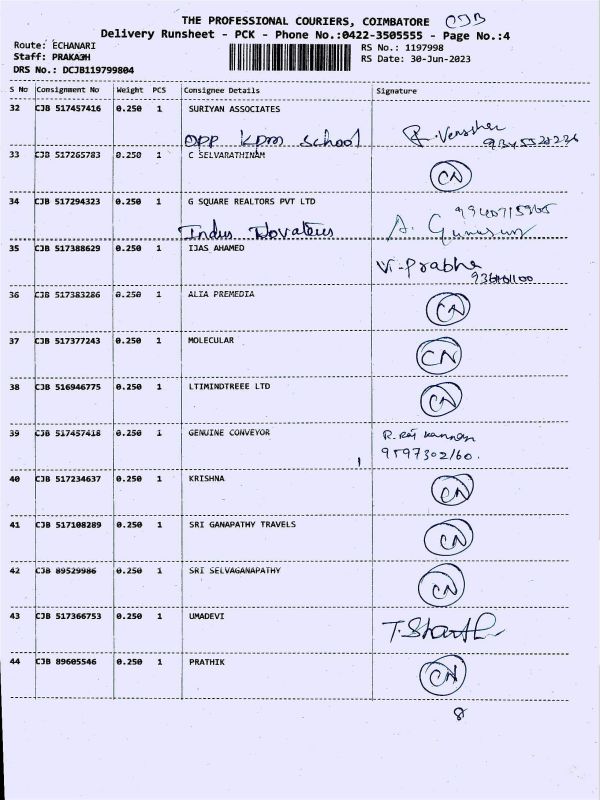 THE PROFESSIONAL COURIERS, COIMBATORE CJB
Delivery Runsheet - PCK - Phone No.:0422-3505555 - Page No.:4
Route: ECHANARI RS No.: 1197998
Staff: PRAKASH RS Date: 30-Jun-2023
DRS No.: DCJB119799804
S No Consignment No Weight PCS Consignee Details Signature
32 CJB 517457416 0.250 1 SURIYAN ASSOCIATES
opp KPM School
33 CJB 517265783 0.250 1 C SELVARATHINAM CN
34 CJB 517294323 0.250 1 G SQUARE REALTORS PVT LTD
Indus Novateus A.
35 CJB 517388629 0.250 1 IJAS AHAMED
Vi-Prabha
36 CJB 517383286 0.250 1 ALIA PREMEDIA CN
37 CJB 517377243 0.250 1 MOLECULAR CN
38 CJB 516946775 0.250 1 LTIMINDTREEE LTD CN
39 CJB 517457418 0.250 1 GENUINE CONVEYOR R. Raj Kannan
9597302160.
40 CJB 517234637 0.250 1 KRISHNA CN
41 CJB 517108289 0.250 1 SRI GANAPATHY TRAVELS CN
42 CJB 89529986 0.250 1 SRI SELVAGANAPATHY CN
43 CJB 517366753 0.250 1 UMADEVI T.
44 CJB 89605546 0.250 1 PRATHIK CN
8